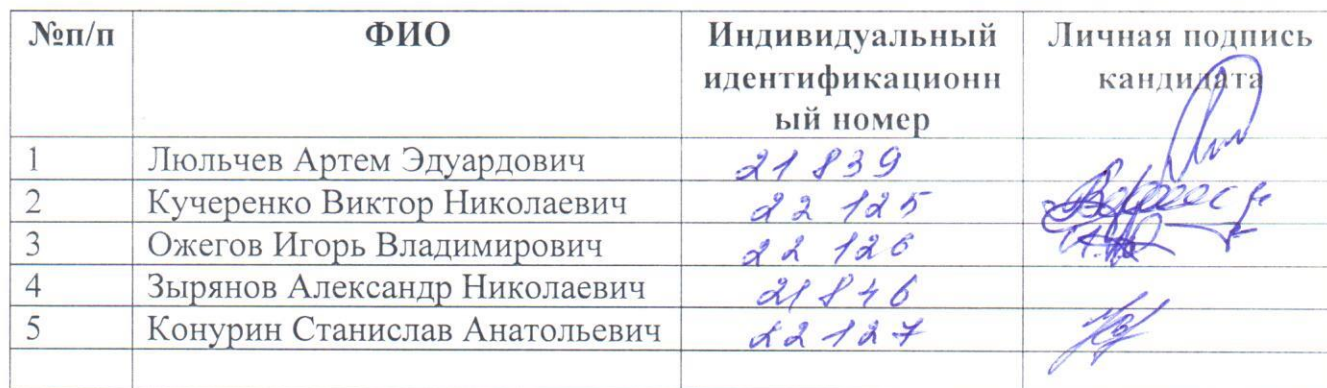 №п/п ФИО Индивидуальный Личная подпись
идентификационн кандидата
ый номер
1 Люльчев Артем Эдуардович 21839
2 Кучеренко Виктор Николаевич 22125
3 Ожегов Игорь Владимирович 22126
4 Зырянов Александр Николаевич 21846
5 Конурин Станислав Анатольевич 22127